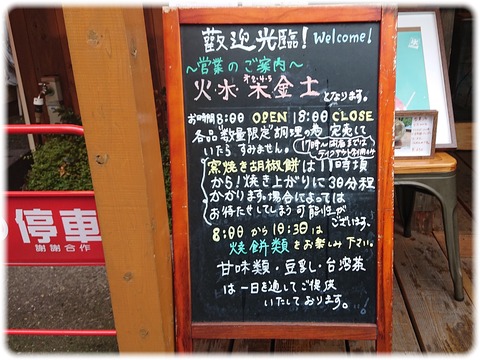 歡迎光臨! Welcome!
〜営業のご案内〜
火水木金土
となります。
お時間8:00 OPEN 18:00 CLOSE
各品数量限定調理の為 完売して
いたら すみません。
窯焼き胡椒餅は11時頃
から!焼き上がりに30分程
かかります。場合によっては
お待たせしてしまう可能性が
ございます。
8:00から10:30は
焼餅類をお楽しみ下さい。
甘味類・豆乳・台湾茶
は一日を通してご提供
いたしております。!
停車
謝謝合作